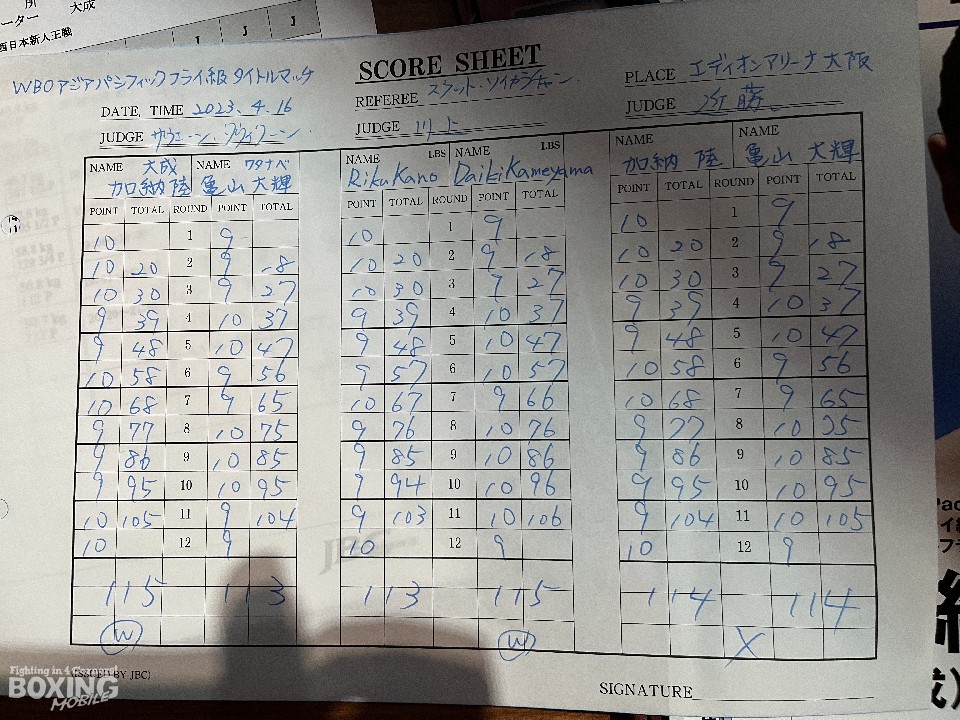 所
ーター 大成
西日本新人王戦
J J J
SCORE SHEET
WBOアジアパシフィックフライ級タイトルマッチ
DATE, TIME 2023、4.16
REFEREE
PLACE エディオンアリーナ大阪
JUDGE
JUDGE 川上
JUDGE 近藤
NAME 大成 加納 陸 NAME ワタナベ 亀山 大輝
POINT TOTAL ROUND POINT TOTAL
10 1 9
10 20 2 9 18
10 30 3 9 27
9 39 4 10 37
9 48 5 10 47
10 58 6 9 56
10 68 7 9 65
9 77 8 10 75
9 86 9 10 85
9 95 10 10 95
10 105 11 9 104
10 12 9
115 113
W
NAME LBS Riku Kano NAME LBS Daiki Kameyama
POINT TOTAL ROUND POINT TOTAL
10 1 9
10 20 2 9 18
10 30 3 9 27
9 39 4 10 37
9 48 5 10 47
9 57 6 10 57
10 67 7 9 66
9 76 8 10 76
9 85 9 10 86
9 94 10 10 96
9 103 11 10 106
10 12 9
113 115
W
NAME 加納 陸 NAME 亀山 大輝
POINT TOTAL ROUND POINT TOTAL
10 1 9
10 20 2 9 18
10 30 3 9 27
9 39 4 10 37
9 48 5 10 47
10 58 6 9 56
10 68 7 9 65
9 77 8 10 75
9 86 9 10 85
9 95 10 10 95
9 104 11 10 105
10 12 9
114 114
X
JBC
(ISSUED BY JBC)
SIGNATURE
Fighting in 4 Corners!
BOXING
MOBILE